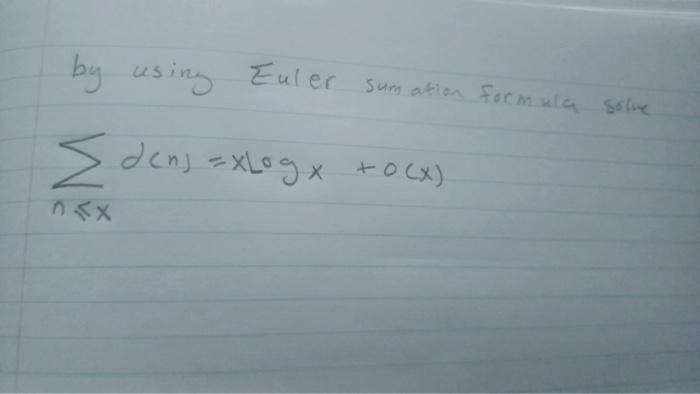 by using Euler sumation formula solve
∑ d(n) = xLog x + O(x)
n ≤ x